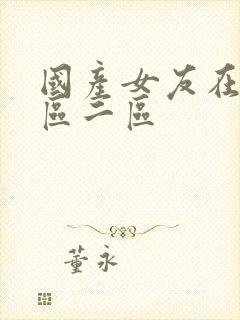 國產女友在
區二區
董永